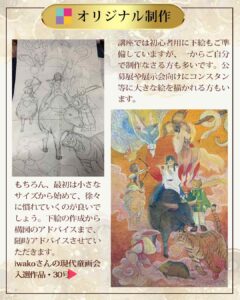 オリジナル制作
講座では初心者用に下絵もご準
備していますが、一からご自分
で制作なさる方も多いです。公
募展や展示会向けにコンスタン
等に大きな絵を描かれる方もい
ます。
もちろん、最初は小さな
サイズから始めて、徐々
に慣れていくのが良いで
しょう。下絵の作成から
構図のアドバイスまで、
随時アドバイスさせてい
ただきます。
iwakoさんの現代童画会
入選作品・30号